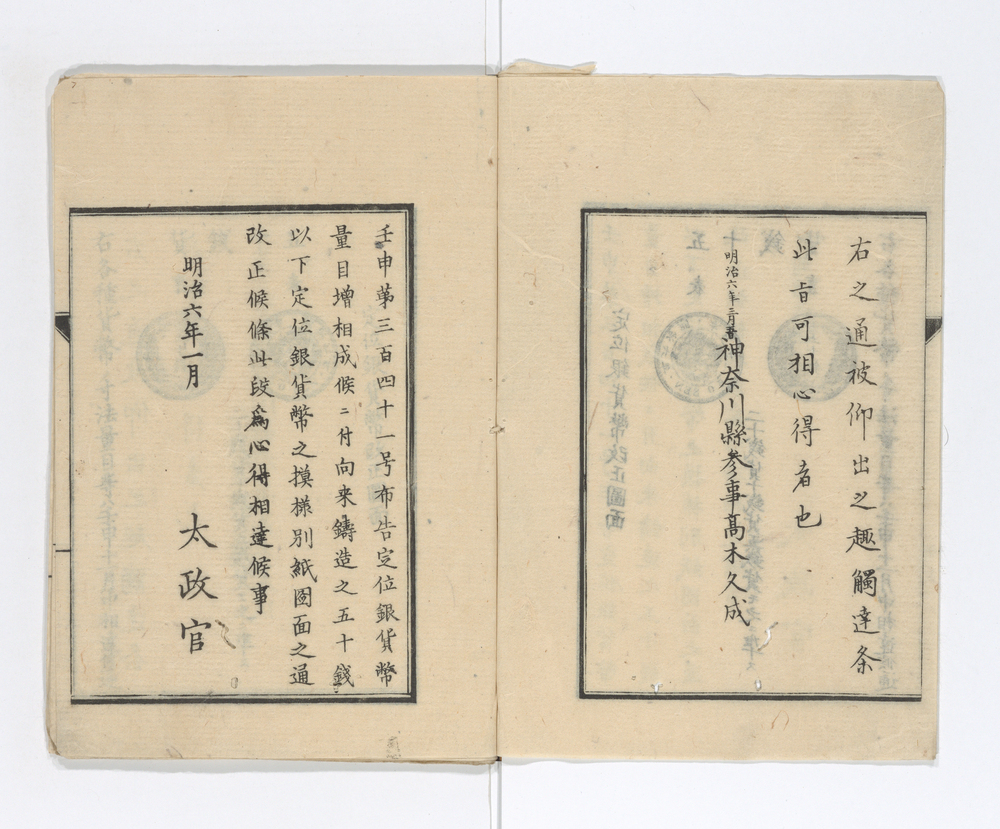 右之通被仰出之趣觸達条
此旨可相心得者也
明治六年二月
神奈川縣参事髙木久成
壬申第三百四十一号布告定位銀貨幣
量目增相成候ニ付向来鑄造之五十錢
以下定位銀貨幣之摸様別紙図面之通
改正候條此段爲心得相達候事
明治六年一月
太政官